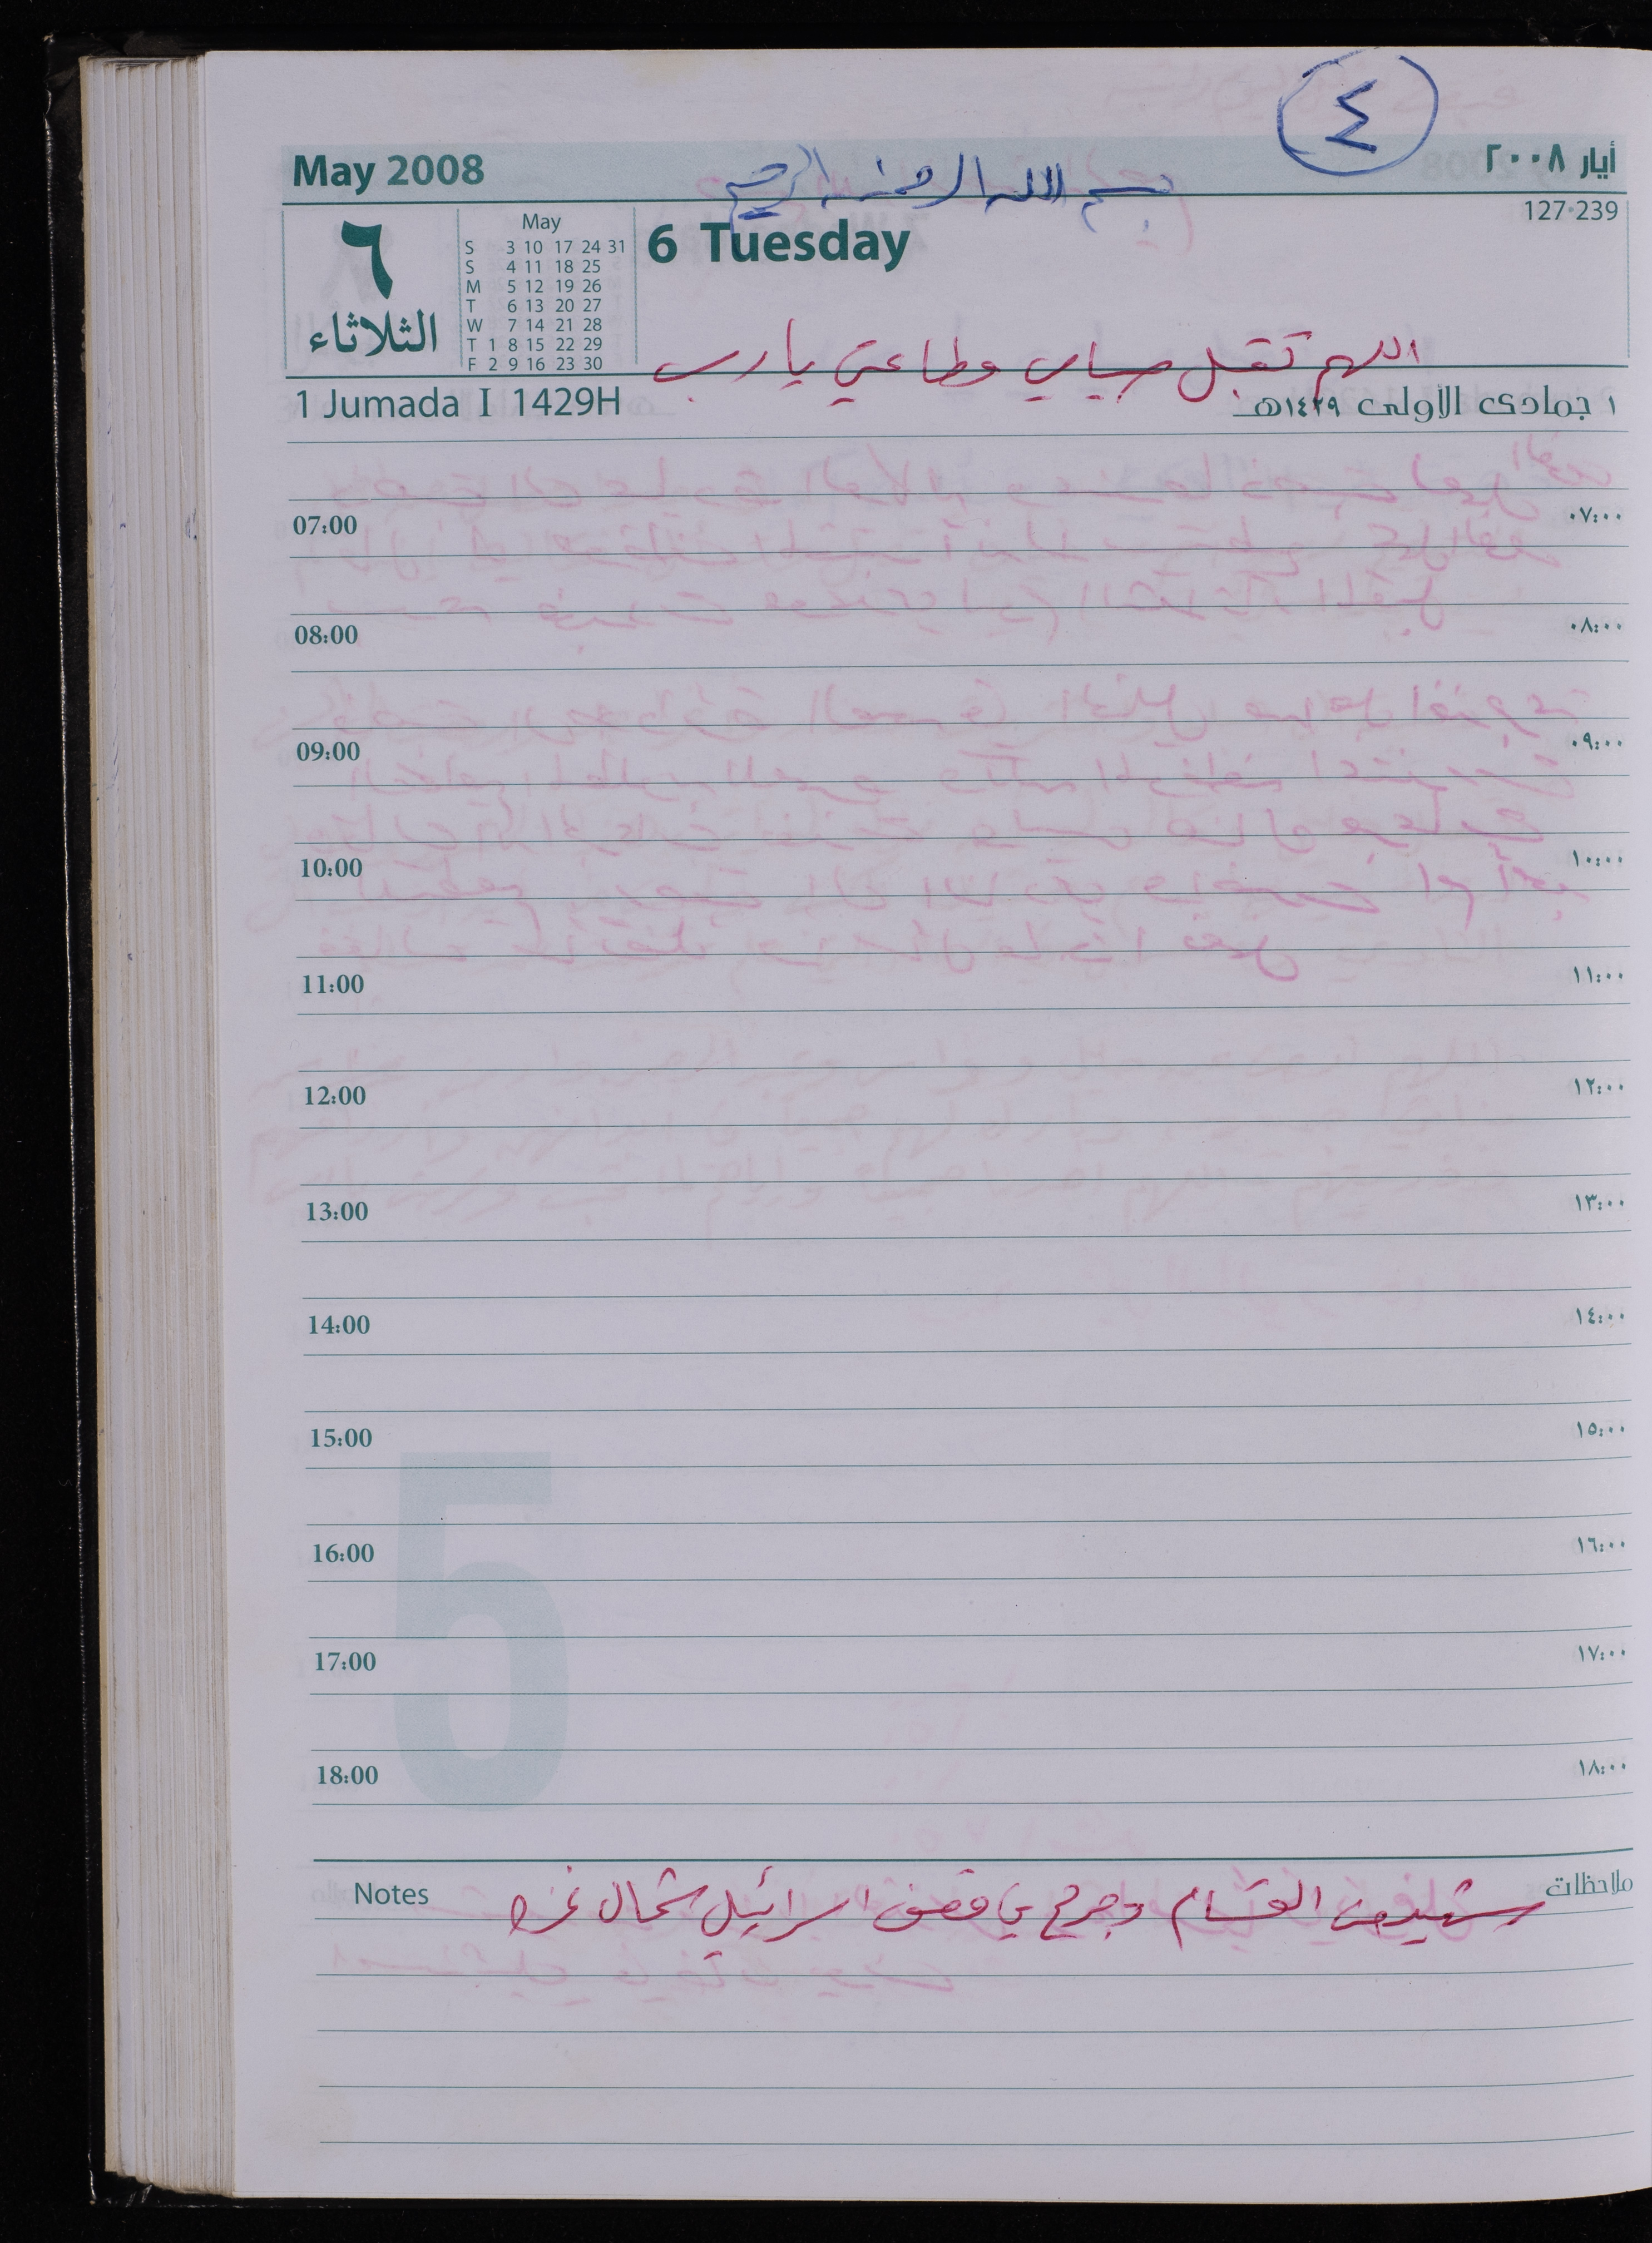 ٤
May 2008
أيار ٢٠٠٨
بسم الله الرحمن الرحيم
127·239
٦
الثلاثاء
May
S 3 10 17 24 31
S 4 11 18 25
M 5 12 19 26
T 6 13 20 27
W 7 14 21 28
T 1 8 15 22 29
F 2 9 16 23 30
6 Tuesday
اللهم تقبل صيامي وطاعتي يا رب
1 Jumada I 1429H
١ جمادى الأولى ١٤٢٩هـ
07:00 ٠٧:٠٠
08:00 ٠٨:٠٠
09:00 ٠٩:٠٠
10:00 ١٠:٠٠
11:00 ١١:٠٠
12:00 ١٢:٠٠
13:00 ١٣:٠٠
14:00 ١٤:٠٠
15:00 ١٥:٠٠
5
16:00 ١٦:٠٠
17:00 ١٧:٠٠
18:00 ١٨:٠٠
Notes
ملاحظات
القسام وجرح في قصف اسرائيل شمال غزه